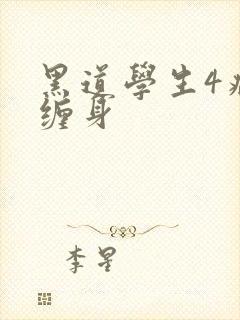 黑道學生4
缠身
李星